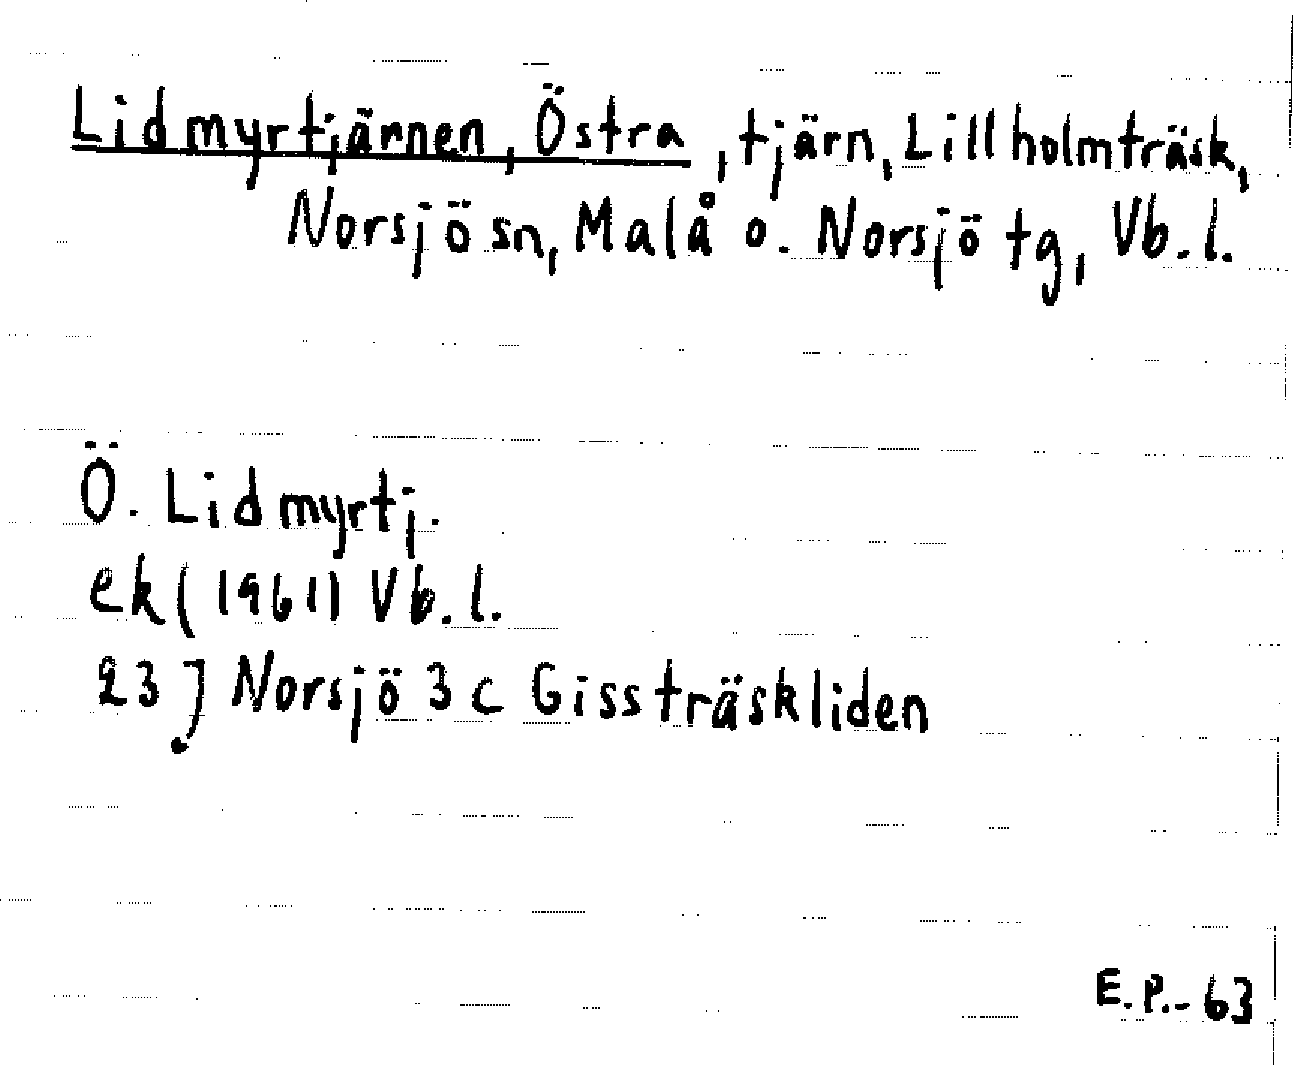 Lidmyrtjärnen, Östra, tjärn, Lillholmträsk,
Norsjö sn, Malå o. Norsjö tg, Vb.l.
Ö. Lidmyrtj.
ek (1961) Vb.l.
23 J Norsjö 3 c Gissträskliden
E.P.-63